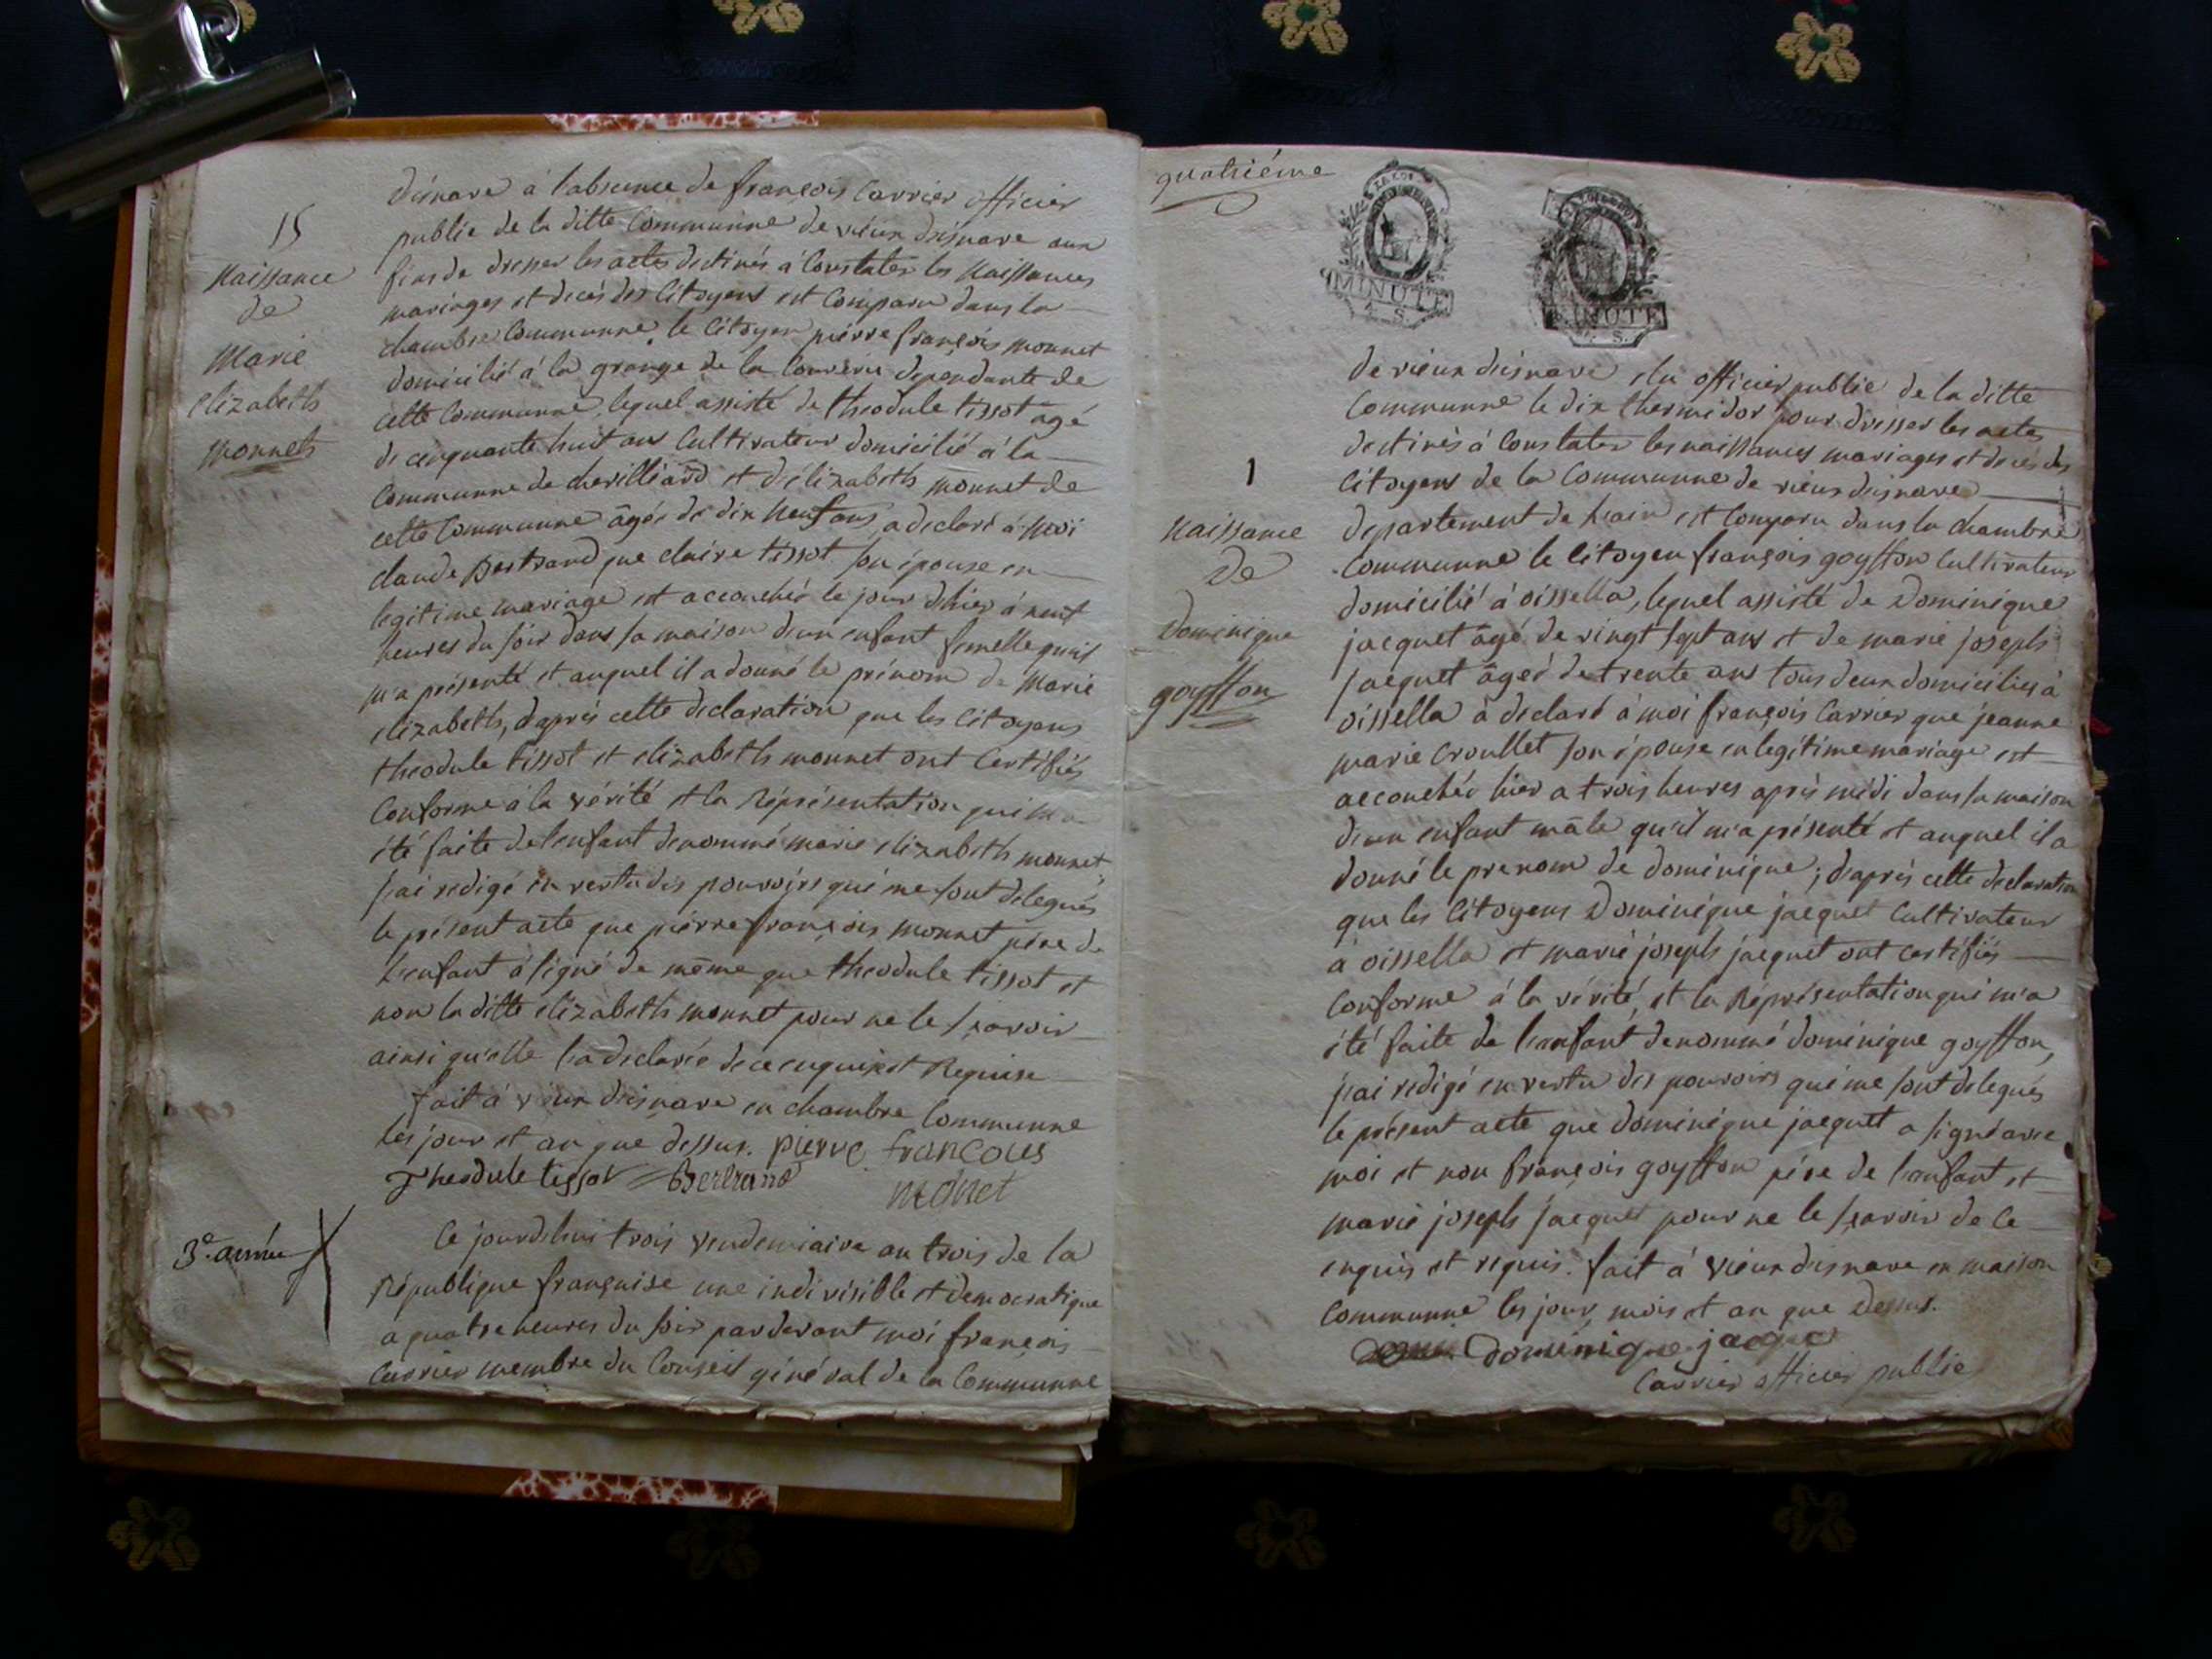 15
Naissance
de
Marie
elizabeth
Monnet
disnave à l'absence de françois Carrier officier
public de la ditte Communne de vieux disnave aux
fins de dresser les actes destinés à Constater les Naissances
mariages et decès des Citoyens est Comparu dans la
chambre Communne, le Citoyen piérre françois monnet
domicilié à la grange de la Couverie dependante de
cette Communne, lequel assisté de theodule tissot âgé
de cinquante huit ans Cultivateur domicilié à la
Communne de chevilliard et d'élizabeth monnet de
cette Communne âgée de dix Neuf ans, a declaré à Moi
claude Bertrand que claire tissot son épouse en
legitime mariage est accouchée le jour d'hier à neuf
heures du soir dans sa maison d'un enfant femelle qu'il
m'a présenté et auquel il a donné le prénom de Marie
elizabeth, d'après cette declaration que les Citoyens
theodule tissot et elizabeth monnet ont Certifiés
Conforme à la vérité et la Réprésentation qui m'a
été faite de l'enfant denommé marie elizabeth monnet,
j'ai redigé en vertu des pouvoirs qui me sont delegués
le présent acte que piérre françois monnet père de
l'enfant à signé de même que theodule tissot et
non la ditte elizabeth monnet pour ne le sçavoir
ainsi qu'elle l'a declarée de ce enquise et Requise
fait à vieux disnave en chambre Communne
les jour et an que dessus. pierre francois
Theodule tissot Bertrand monet
3e. année
Ce jourd'hui trois vendemiaire an trois de la
République française une indivisible et democratique
a quatre heures du soir pardevant moi françois
Carrier membre du Conseil général de la Communne
quatriéme
MINUTE
MINUTE
1
Naissance
De
Dominique
goyffon
de vieux disnave elu officier public de la ditte
Communne le dix thermidor pour dresser les actes
destinés à Constater les naissances mariages et decès des
Citoyens de la Communne de vieux disnave
departement de L'ain est Comparu dans la chambre
Communne le Citoyen françois goyffon Cultivateur
domicilié à oissella, lequel assisté de Dominique
jacquet âgé de vingt sept ans et de marie joseph
jacquet âgée de trente ans tous deux domiciliés à
oissella à declaré à moi françois Carrier que jeanne
marie Croullet son épouse en legitime mariage est
accouchée hier a trois heures après midi dans sa maison
d'un enfant mâle qu'il m'a présenté et auquel il a
donné le prenom de dominique ; d'après cette declaration
que les Citoyens Dominique jacquet Cultivateur
à oissella et marie joseph jacquet ont certifiés
Conforme à la vérité, et la Réprésentation qui m'a
été faite de l'enfant denommé dominique goyffon,
j'ai redigé en vertu des pouvoirs qui me sont delegués
le présent acte que dominique jacquet a signé avec
moi et non françois goyffon père de l'enfant et
marie joseph jacquet pour ne le sçavoir de ce
enquis et requis. fait à vieux disnave en maison
Communne les jour, mois et an que Dessus.
dominique jacque
Carrier officier public